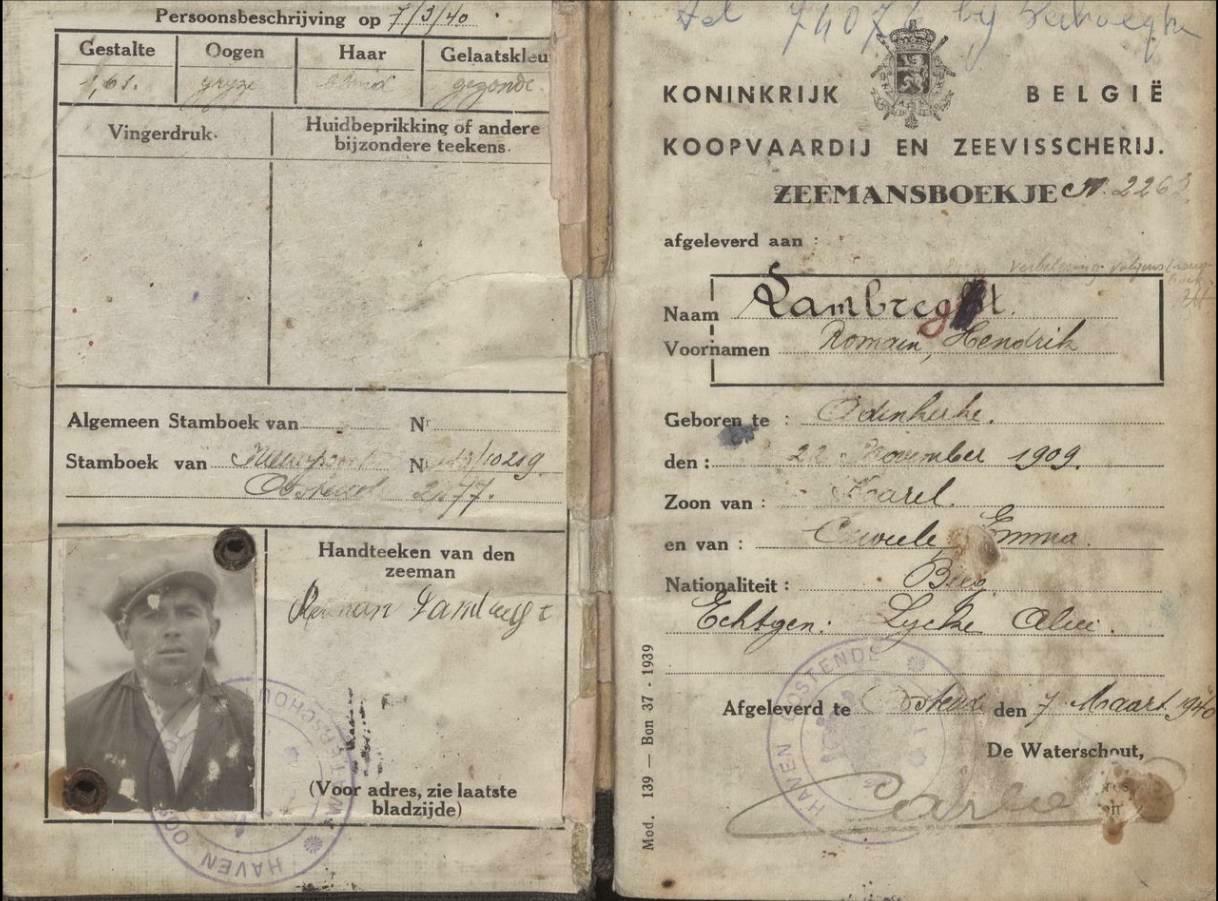 Persoonsbeschrijving op 7/3/40
Gestalte Oogen Haar Gelaatskleu
1,61. gryze blond gezonde.
Vingerdruk. Huidbeprikking of andere
bijzondere teekens.
Algemeen Stamboek van Nr
Stamboek van Nieuwpoort N
Oostende 2177.
Handteeken van den
zeeman
Roman Lambregt
(Voor adres, zie laatste
bladzijde)
HAVEN OOSTENDE WATERSCHOUT
tel 74072 bij
KONINKRIJK BELGIË
KOOPVAARDIJ EN ZEEVISSCHERIJ.
ZEEMANSBOEKJE N. 2263
afgeleverd aan :
Verbetering volgens
Naam Lambregt.
Voornamen Romain, Hendrik
Geboren te : Adinkerke.
den : 22 November 1909.
Zoon van : Karel.
en van : Emma.
Nationaliteit : Belg
Echtgen: Lycke
HAVEN OOSTENDE
Afgeleverd te Oostende den 7 Maart 1940
De Waterschout,
Mod. 139 — Bon 37 - 1939